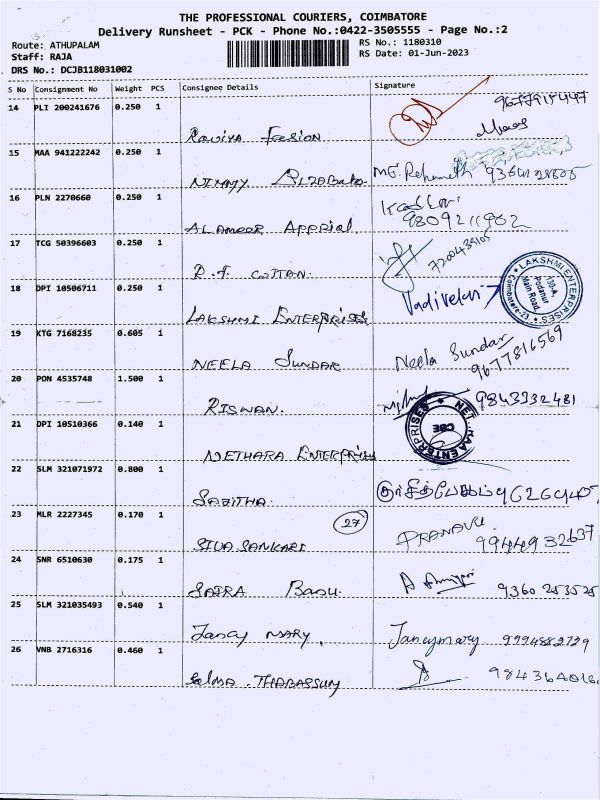 THE PROFESSIONAL COURIERS, COIMBATORE
Delivery Runsheet - PCK - Phone No.:0422-3505555 - Page No.:2
Route: ATHUPALAM RS No.: 1180310
Staff: RAJA RS Date: 01-Jun-2023
DRS No.: DCJB118031002
S No Consignment No Weight PCS Consignee Details Signature
14 PLI 200241676 0.250 1
Raviya Fasion
15 MAA 941222242 0.250 1
16 PLN 2270660 0.250 1
ALAMEER Apprial
9809211902
17 TCG 50396603 0.250 1
COTTAN.
18 DPI 10506711 0.250 1
LAKSHMI ENTERPRISES Vadivelan
LAKSHMI ENTERPRISES
130-A,
Podanur
Main Road,
Coimbatore-23
19 KTG 7168235 0.605 1
NEELA SUNDAR Neela Sundar
9677816569
20 PON 4535748 1.500 1
RISWAN. 9843332481
21 DPI 10510366 0.140 1
NETHARA ENTERPRISES
CBE
22 SLM 321071972 0.800 1
SABITHA
23 MLR 2227345 0.170 1
27
SIVA SANKARI 9944932637
24 SNR 6510630 0.175 1
SAIRA Banu. 9360253525
25 SLM 321035493 0.540 1
Jancy MARY, Jancymary 9994882729
26 VNB 2716316 0.460 1
Salma .THABASSUM